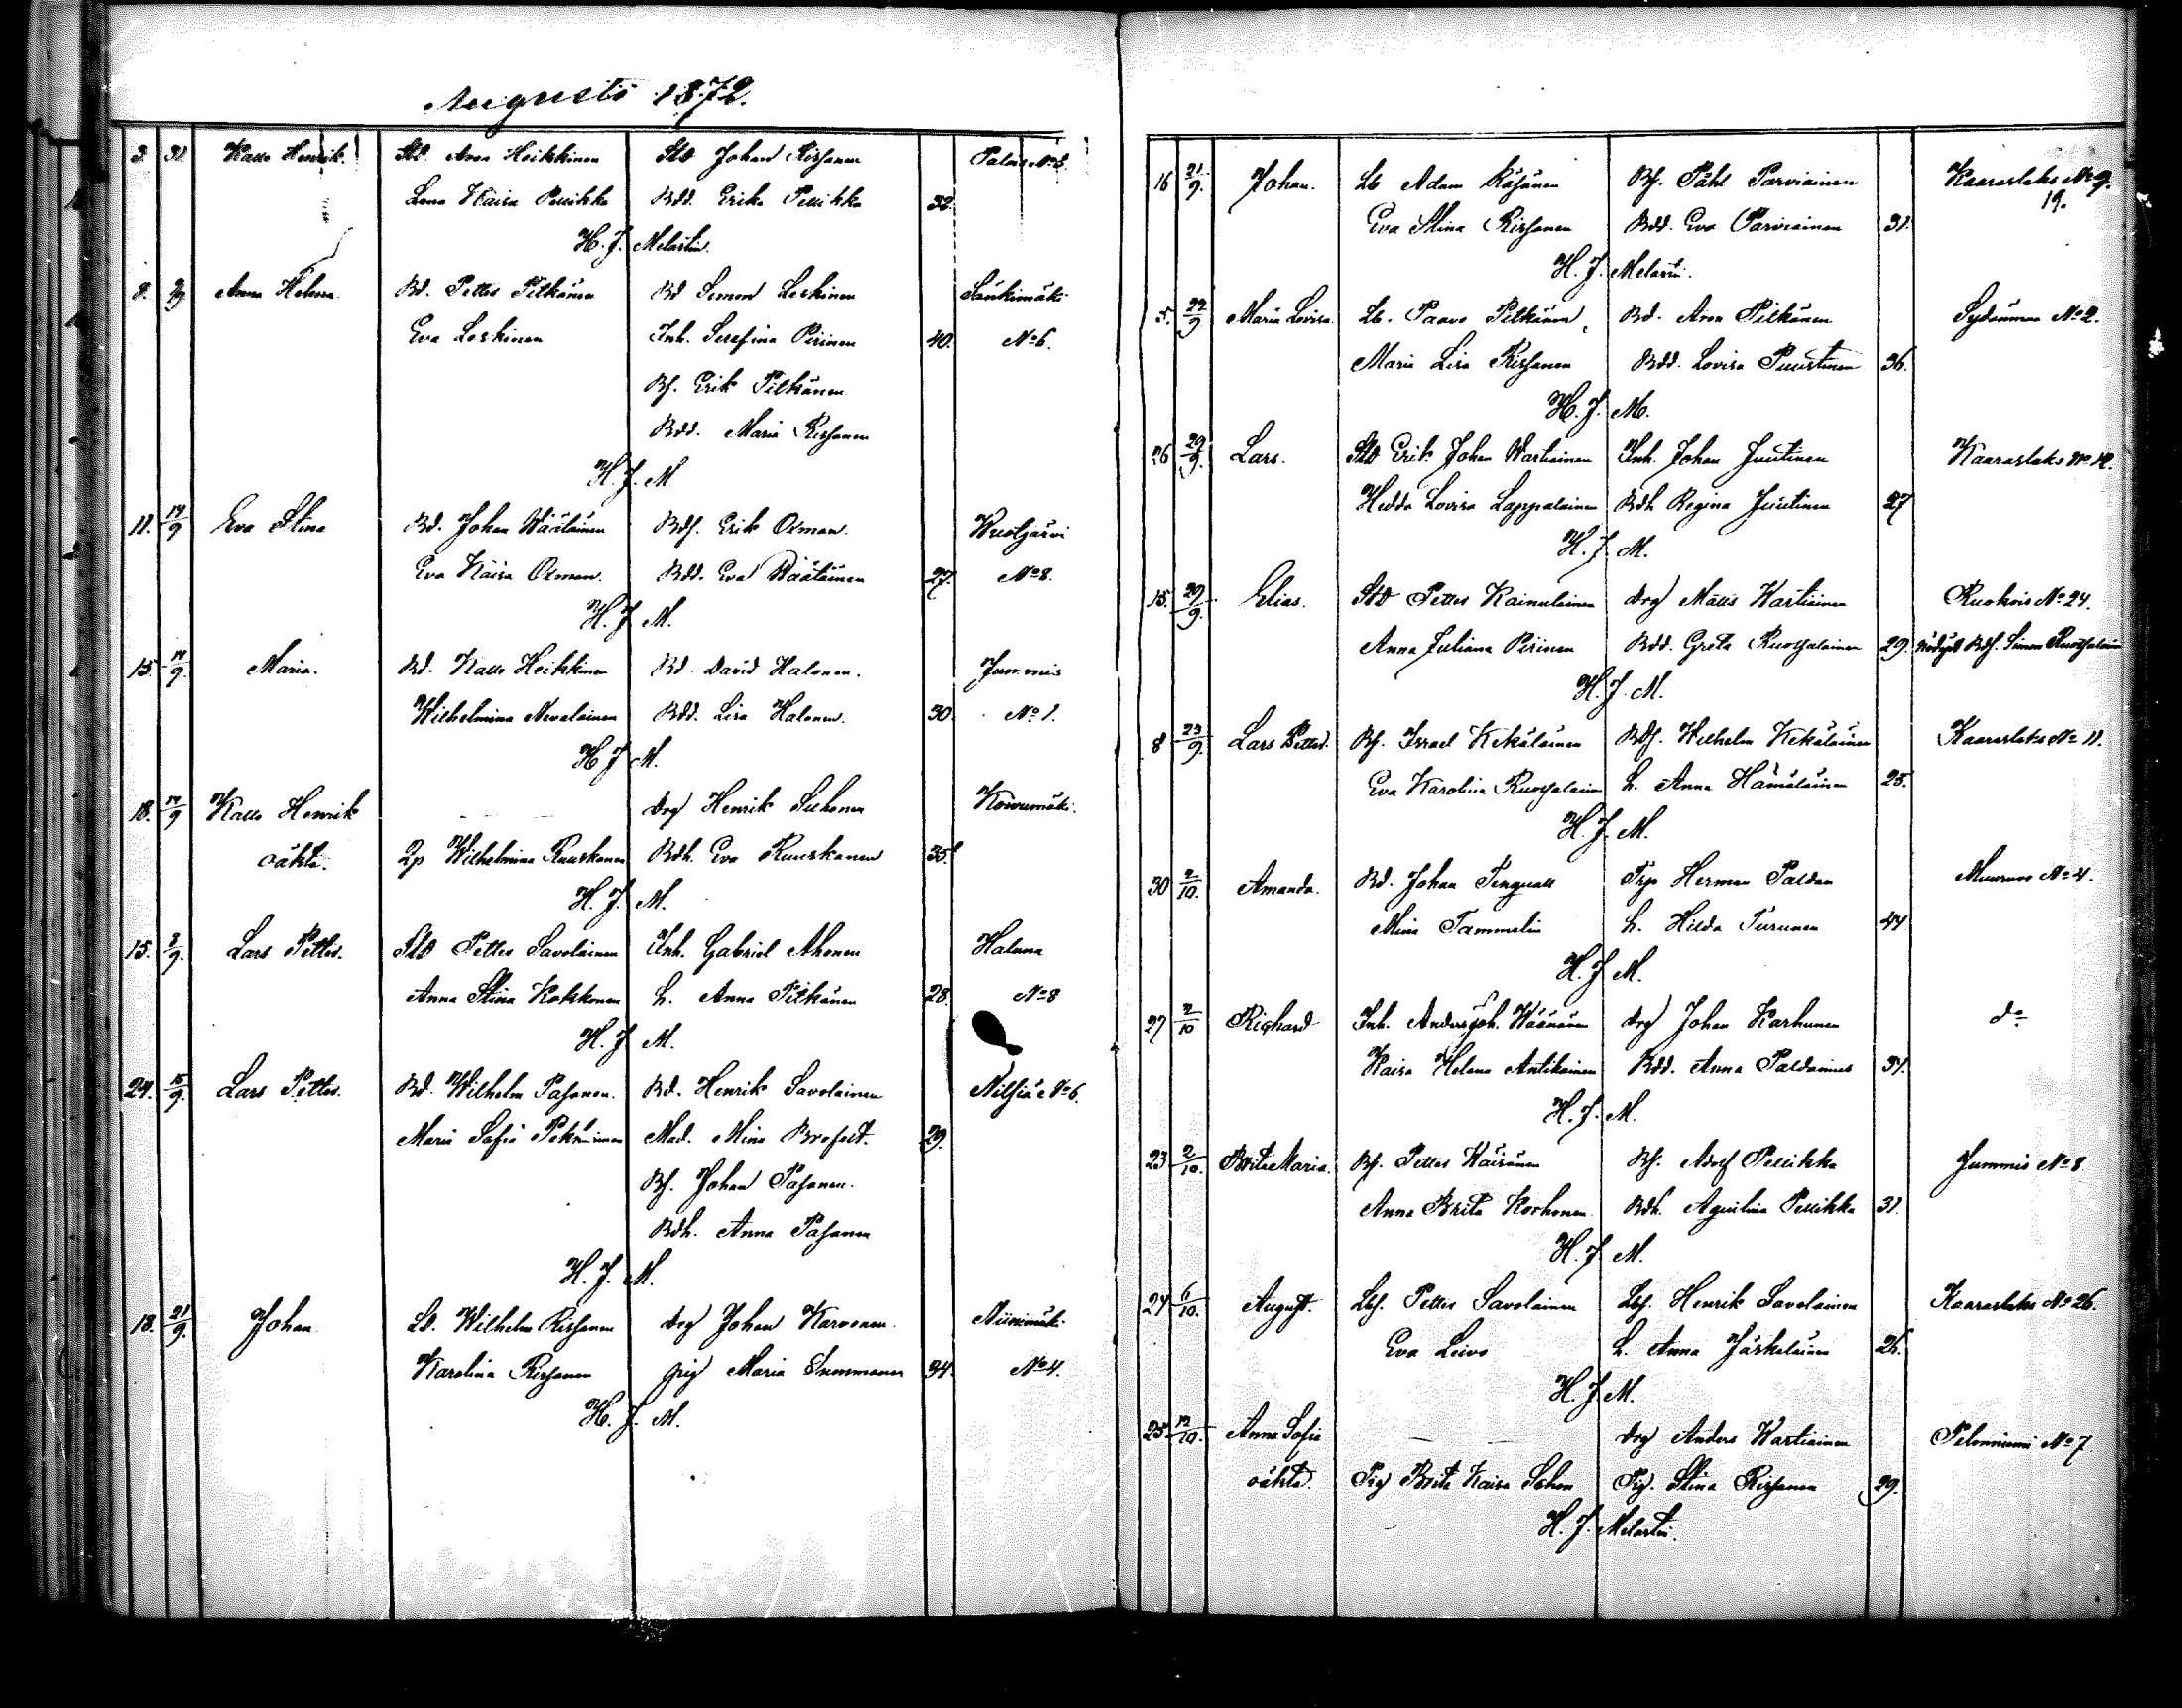 Augusti 1872.
3. 31. Kalle Henrik. Stb Aron Heikkinen Stb Johan Rissanen Palois No 5.
Lena Kaisa Pellikka Bdd. Erika Pellikka 32.
H. J. Melartin.
8. 2/9 Anna Helena. Bd. Petter Pitkänen Bd Simon Leskinen Sänkimäki
Eva Leskinen Inh. Serefina Pirinen 40. No 6.
Bs. Erik Pitkänen
Bdd. Maria Rissanen
H. J. M
11. 14/9 Eva Stina Bd. Johan Väätäinen Bds. Erik Ozman. Wuotjärvi
Eva Kaisa Ozman. Bdd. Eva Väätäinen 27. No 8.
H. J. M.
15. 14/9. Maria. Bd. Kalle Heikkinen Bd. David Halonen. Jummis
Wilhelmina Nevalainen Bdd. Lisa Halonen. 30. No 1.
H J M.
18. 14/9 Kalle Henrik Drg Henrik Suhonen Koivumäki.
oäkta. Wilhelmina Ruuskanen Bdh. Eva Ruuskanen 35.
H. J. M.
15. /9. Lars Petter. Stb Petter Savolainen Inh. Gabriel Ahonen Haluna
Anna Stina Kokkonen h. Anna Pitkänen 28. No 8
H. J M.
24. 15/9. Lars Petter. Bd. Wilhelm Pasanen. Bd. Henrik Savolainen Nilsiä No 6.
Maria Sofia Mad. Mina Brofelt. 29.
Bs. Johan Pasanen.
Bdh. Anna Pasanen
H. J. M.
18. 21/9. Johan Lb. Wilhelm Rissanen Drg Johan Karvonen. Niinimäki
Karolina Rissanen pig Maria Immonen 34. No 4.
H. J. M.
16 21/9. Johan. Lb Adam Räsänen Bs. Påhl Parviainen Kaaraslaks No 9.
19.
Eva Stina Rissanen Bdd. Eva Parviainen 31.
H. J. Melartin.
5. 22/9 Maria Lovisa. Lb. Paavo Pitkänen Bd. Aron Pitkänen Sydänmaa No 2.
Maria Lisa Rissanen Bdd. Lovisa Puustinen 36.
H. J. M.
26 29/9. Lars. Stb Erik Johan Wartiainen Inh. Johan Juutinen Kaaraslaks No 12.
Hedda Lovisa Lappalainen Bdh Regina Juutinen 27
H. J. M.
15. 29/9. Elias. Stb Petter Kainulainen drg Matts Wartiainen Ruokois No 24.
Anna Juliana Pirinen Bdd. Greta Ruotsalainen 29. nöddöpt Bds. Simon Ruotsalainen
H. J. M.
8 23/9. Lars Petter. Bs. Israel Kekäläinen Bds. Wilhelm Kekäläinen Kaaraslaks No 11.
Eva Karolina Ruotsalainen h. Anna Hämäläinen 25.
H. J. M.
30 2/10. Amanda. Bd. Johan Tengvall Herman Paldan Muuruvis No 4.
Mina Tammelin h. Hilda Turunen 44
H. J M.
27 2/10 Richard Inh. Anders Joh. Wäänänen drg Johan Karhunen do
Kaisa Helena Antikainen Bdd. Anna Paldanius 31.
H. J. M.
23 2/10. Brita Maria. Bs. Petter Väisänen Bs. Adolf Pellikka Jummis No 8
Anna Brita Korhonen Bdh. Aqvilina Pellikka 31.
H. J M.
24 6/10. August. Lbs. Petter Savolainen Lbs. Henrik Savolainen Kaaraslaks No 26.
Eva Leivo h. Anna Jäskeläinen 26.
H. J. M.
25 12/10. Anna Sofia drg Anders Wartiainen Pelonniemi No 7
oäkta. Pig Brita Kaisa Pig. Stina Rissanen 29.
H. J. Melartin.